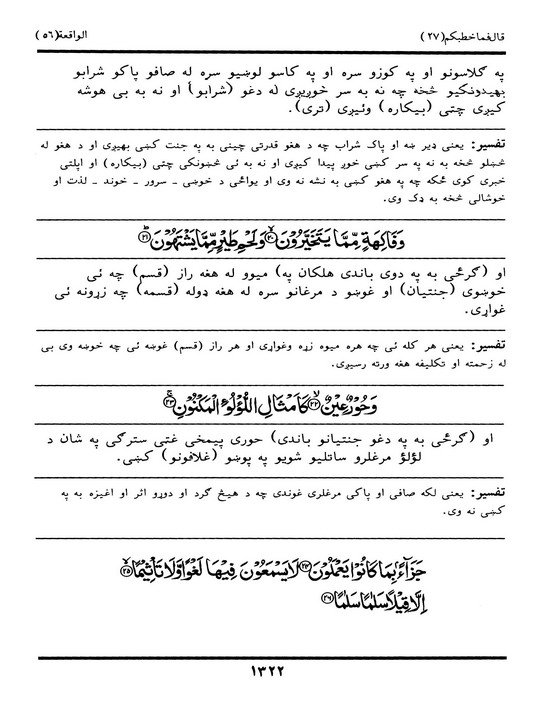 قال فماخطبكم(٢٧) الواقعة(٥٦)
په ګلاسونو او په کوزو سره او په کاسو لوښيو سره له صافو پاکو شرابو
بهيدونکيو څخه چه نه به سر خوږيږي له دغو (شرابو) او نه به بی هوشه
کيږی چتی (بيکاره) وئيږی (تری).
تفسير: يعنی ډير ښه او پاک شراب چه د هغو قدرتی چينی به په جنت کښی بهيږی او د هغو له
څښلو څخه به نه په سر کښی خوږ پيدا کيږی او نه به ئی څښونکی چتی (بيکاره) او اپلتی
خبری کوی ځکه چه په هغو کښی به نشه نه وی او يوائی د خوښی ـ سرور ـ خوند ـ لذت او
خوشالی څخه به ډک وی.
وَفَاكِهَةٍ مِّمَّا يَتَخَيَّرُوْنَ۝٢٠ وَلَحْمِ طَيْرٍ مِّمَّا يَشْتَهُوْنَ۝٢١
او (ګرځی به په دوی باندی هلکان په) ميوو له هغه راز (قسم) چه ئی
خوښوی (جنتيان) او غوښو د مرغانو سره له هغه ډوله (قسمه) چه زړونه ئی
غواړی.
تفسير: يعنی هر کله ئی چه هره ميوه زړه وغواړی او هر راز (قسم) غوښه ئی چه خوښه وی بی
له زحمته او تکليفه هغه ورته رسيږی.
وَحُوْرٌ عِيْنٌ۝٢٢ كَاَمْثَالِ اللُّؤْلُؤِ الْمَكْنُوْنِ۝٢٣
او (ګرځی به په دغو جنتيانو باندی) حوری پيمخی غتی سترګی په شان د
لؤلؤ مرغلرو ساتليو شويو په پوښو (غلافونو) کښی.
تفسير: يعنی لکه صافی او پاکی مرغلری غوندی چه د هيڅ ګرد او دوړو اثر او اغيزه به په
کښی نه وی.
جَزَآءًۢ بِمَا كَانُوْا يَعْمَلُوْنَ۝٢٤ لَا يَسْمَعُوْنَ فِيْهَا لَغْوًا وَّلَا تَاْثِيْمًا۝٢٥
اِلَّا قِيْلًا سَلٰمًا سَلٰمًا۝٢٦
١٣٢٢